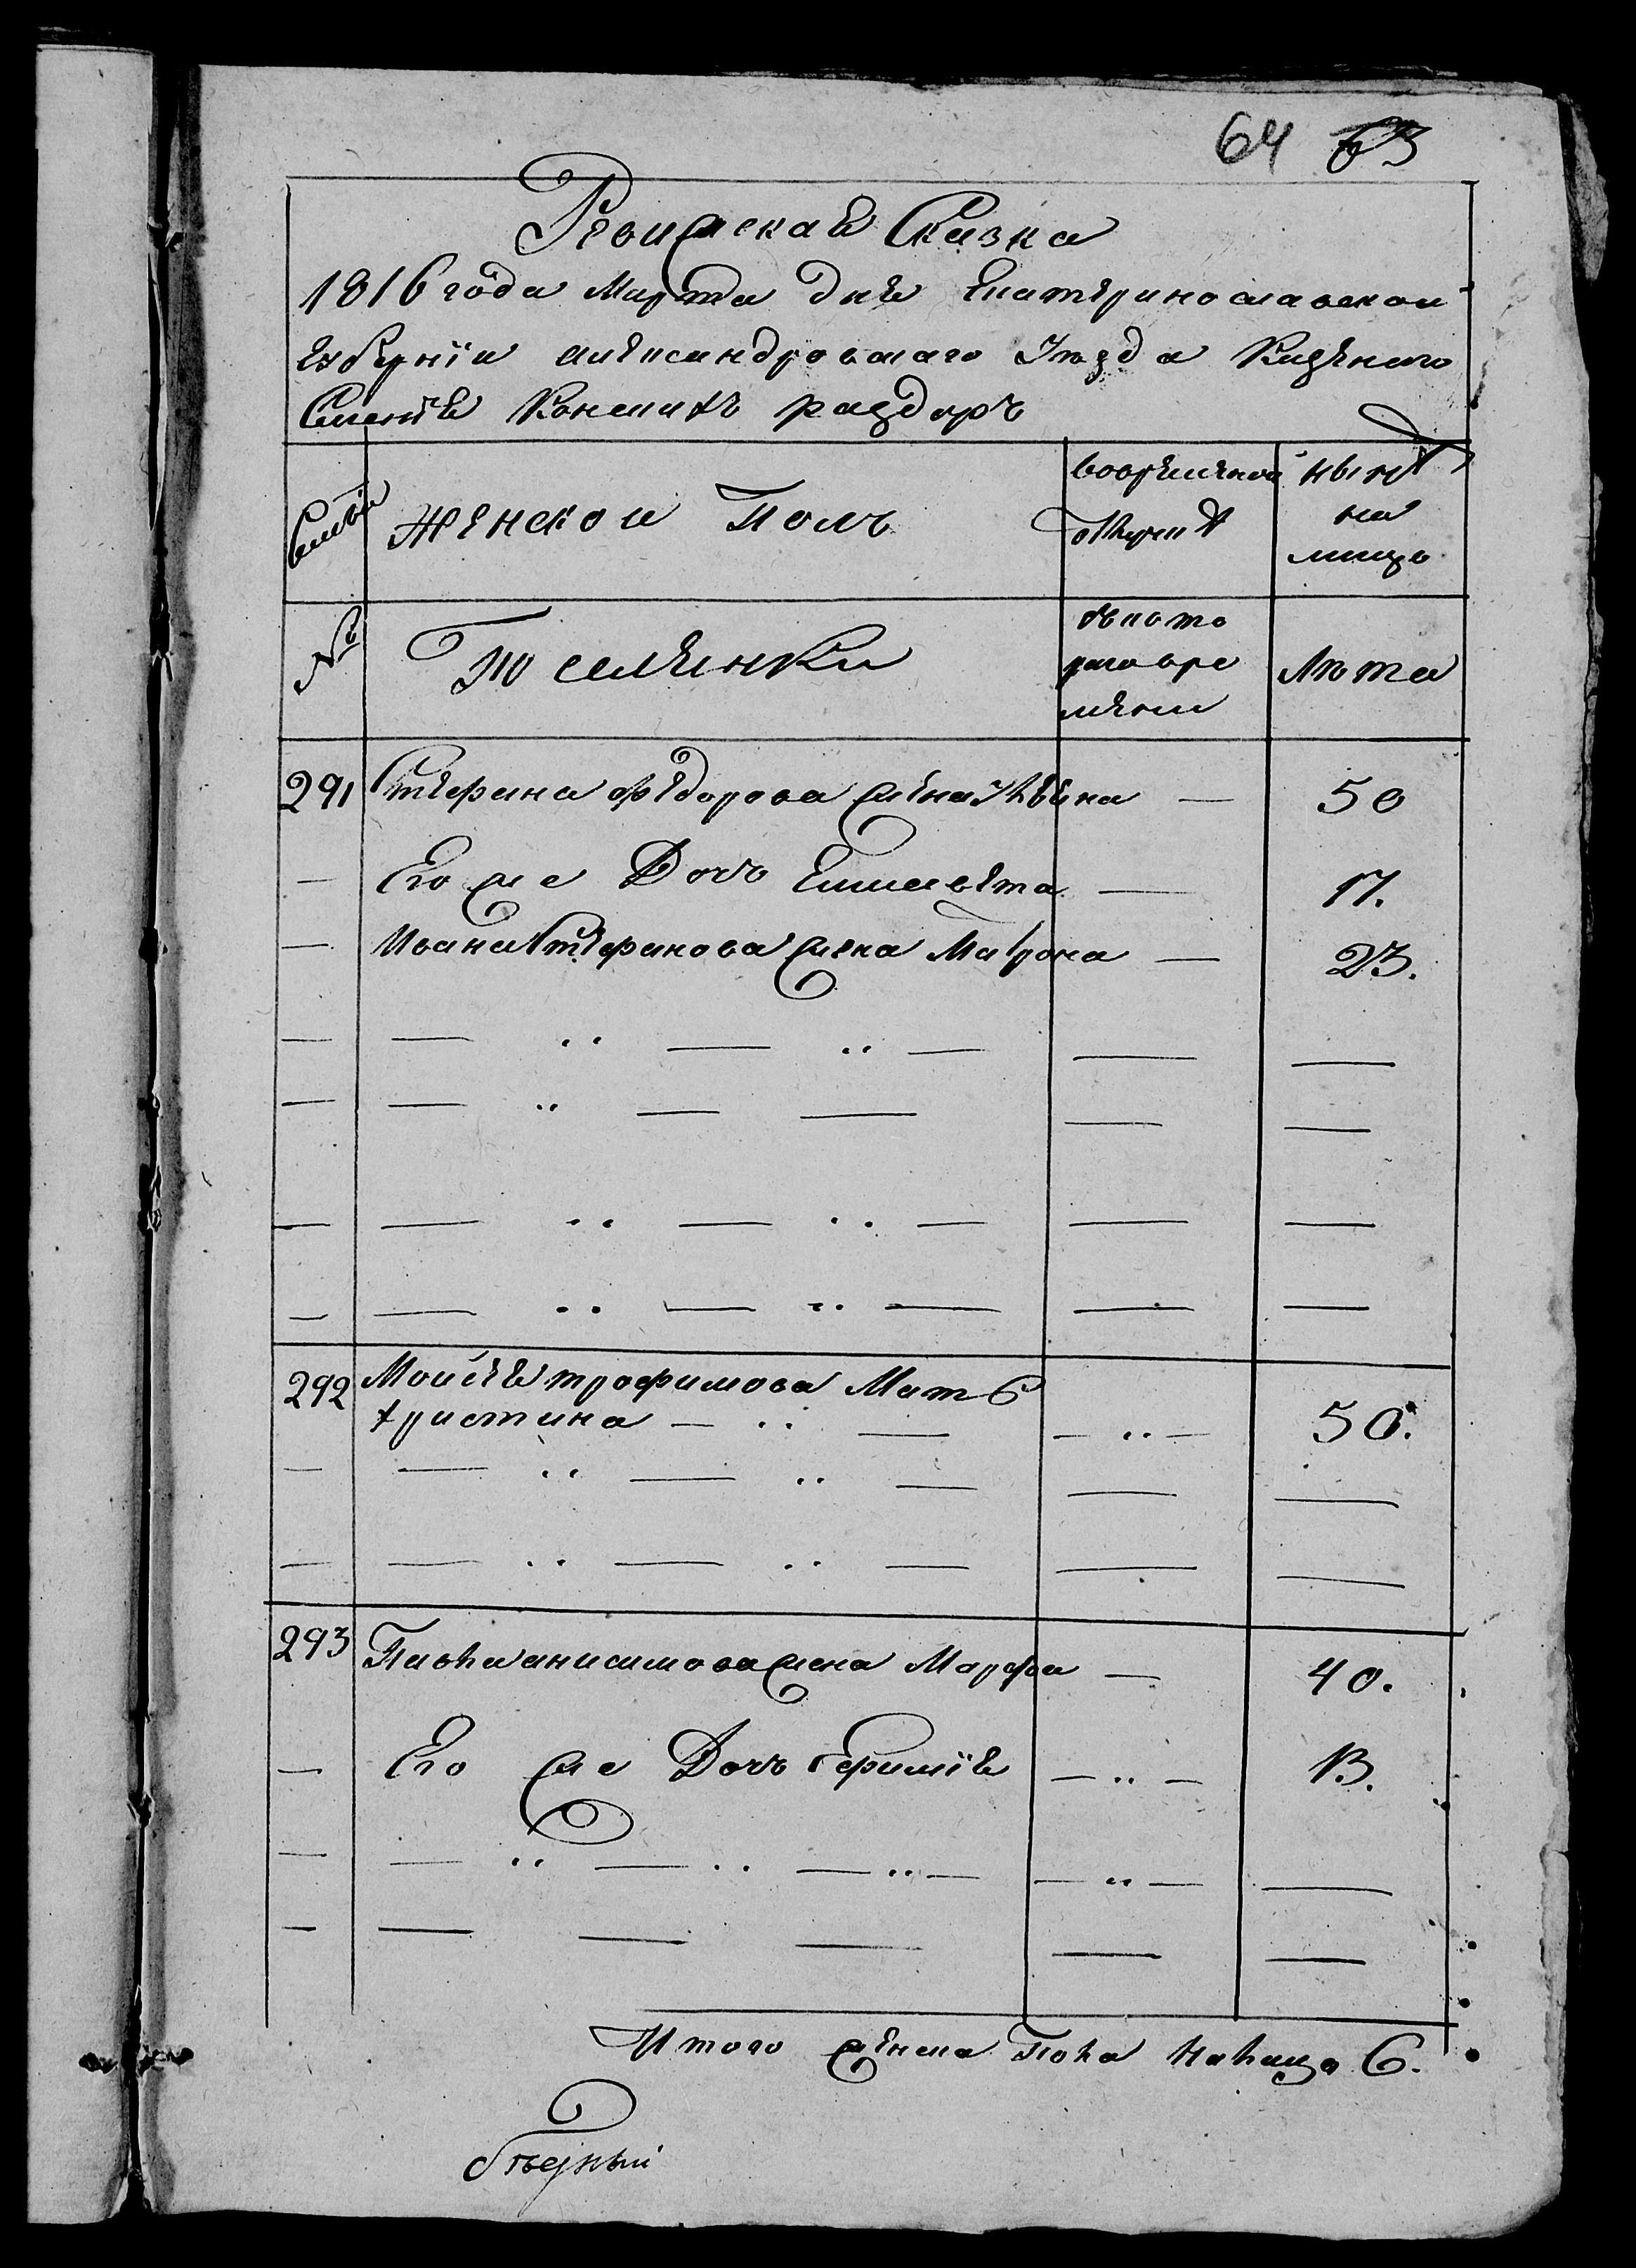 64 63
Ревижская Сказка
1816 года Марта дня Екатеринославской
Губернїи александровскаго Уезда Казенаго
Селенїя Конскихъ раздоръ
семьи женской Полъ вовремянной отлучкѣ нынѣ на лицо
№ Поселянки съкото раго вре мяни лѣта
291 Стефана Федорова жена Ульяна — 50
— Его же Дочь Елисавета — 17.
— Ивана Стефанова жена Матрона — 23.
292 Моисея трофимова Мать
христина — 50.
293 Павла анисимова жена Марфа — 40.
— Его же Дочь Ефимїя — 13.
Итого женска Пола Налицо 6.